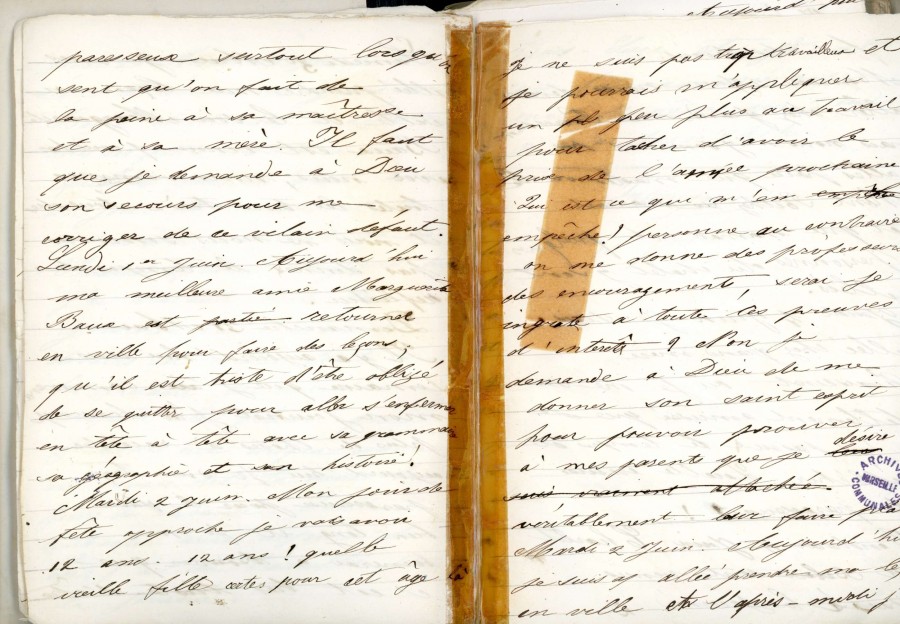 paresseux surtout lorsqu'on
sent qu'on fait de
la peine à sa maîtresse
et à sa mère. Il faut
que je demande à Dieu
son secours pour me
corriger de ce vilain défaut.
Lundi 1er Juin. Aujourd'hui
ma meilleure amie Marguerite
Baux est partie retournée
en ville pour faire des leçons,
qu'il est triste d'être obligé
de se quitter pour aller s'enfermer
en tête à tête avec sa grammaire
sa géographie et son histoire!
Mardi 2 Juin. Mon jour de
fête approche je vais avoir
12 ans. 12 ans! quelle
vieille fille certes pour cet âge là
je ne suis pas très travailleuse et
je pourrais m'appliquer
un peu plus au travail
pour tâcher d'avoir le
prix de l'année prochaine
Qui est ce qui m'en
empêche! personne au contraire
on me donne des professeurs
des encouragements, serai je
ingrate à toute ces preuves
d'interêt? Non je
demande à Dieu de me
donner son saint esprit
pour pouvoir prouver
à mes parents que je désire
suis vraiment attachée
véritablement leur faire
Mardi 2 Juin. Aujourd'hui
je suis allée prendre ma
en ville et l'après-midi j
ARCHIVES
COMMUNALES
MARSEILLE